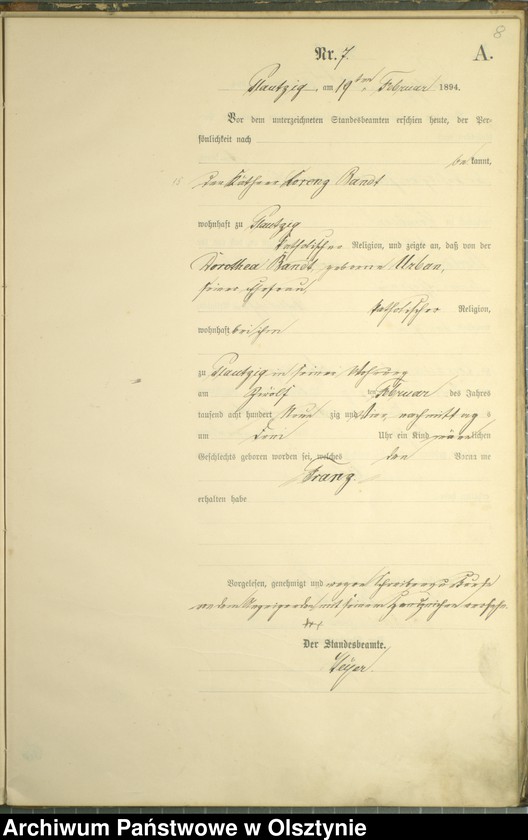 8
Nr. 7
A.
Plautzig, am 19ten Februar 1894.
Vor dem unterzeichneten Standesbeamten erschien heute, der Per-
sönlichkeit nach
be kannt,
der Käthner Lorenz Bandt
wohnhaft zu Plautzig
katholischer Religion, und zeigte an, daß von der
Dorothea Bandt, geborene Urban,
seiner Ehefrau
katholischer Religion,
wohnhaft bei ihm
zu Plautzig in seiner Wohnung
am Zwölf ten Februar des Jahres
tausend acht hundert Neun zig und Vier nachmittags
um Drei Uhr ein Kind männlichen
Geschlechts geboren worden sei, welches den Vorna me
Franz
erhalten habe
Vorgelesen, genehmigt und wegen Schreibens
von dem Anzeigenden mit seinem Handzeichen versehen
+++
Der Standesbeamte.
Archiwum Państwowe w Olsztynie